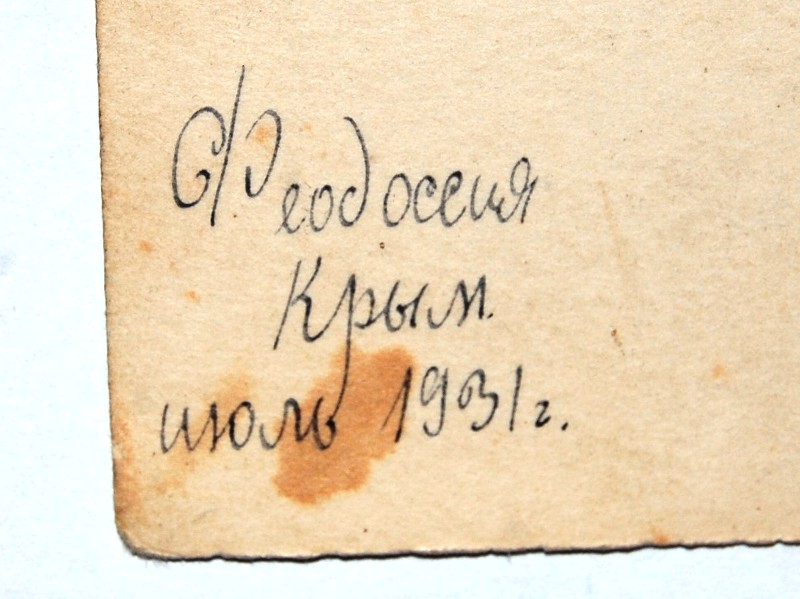 Феодоссия
Крым.
июль 1931г.